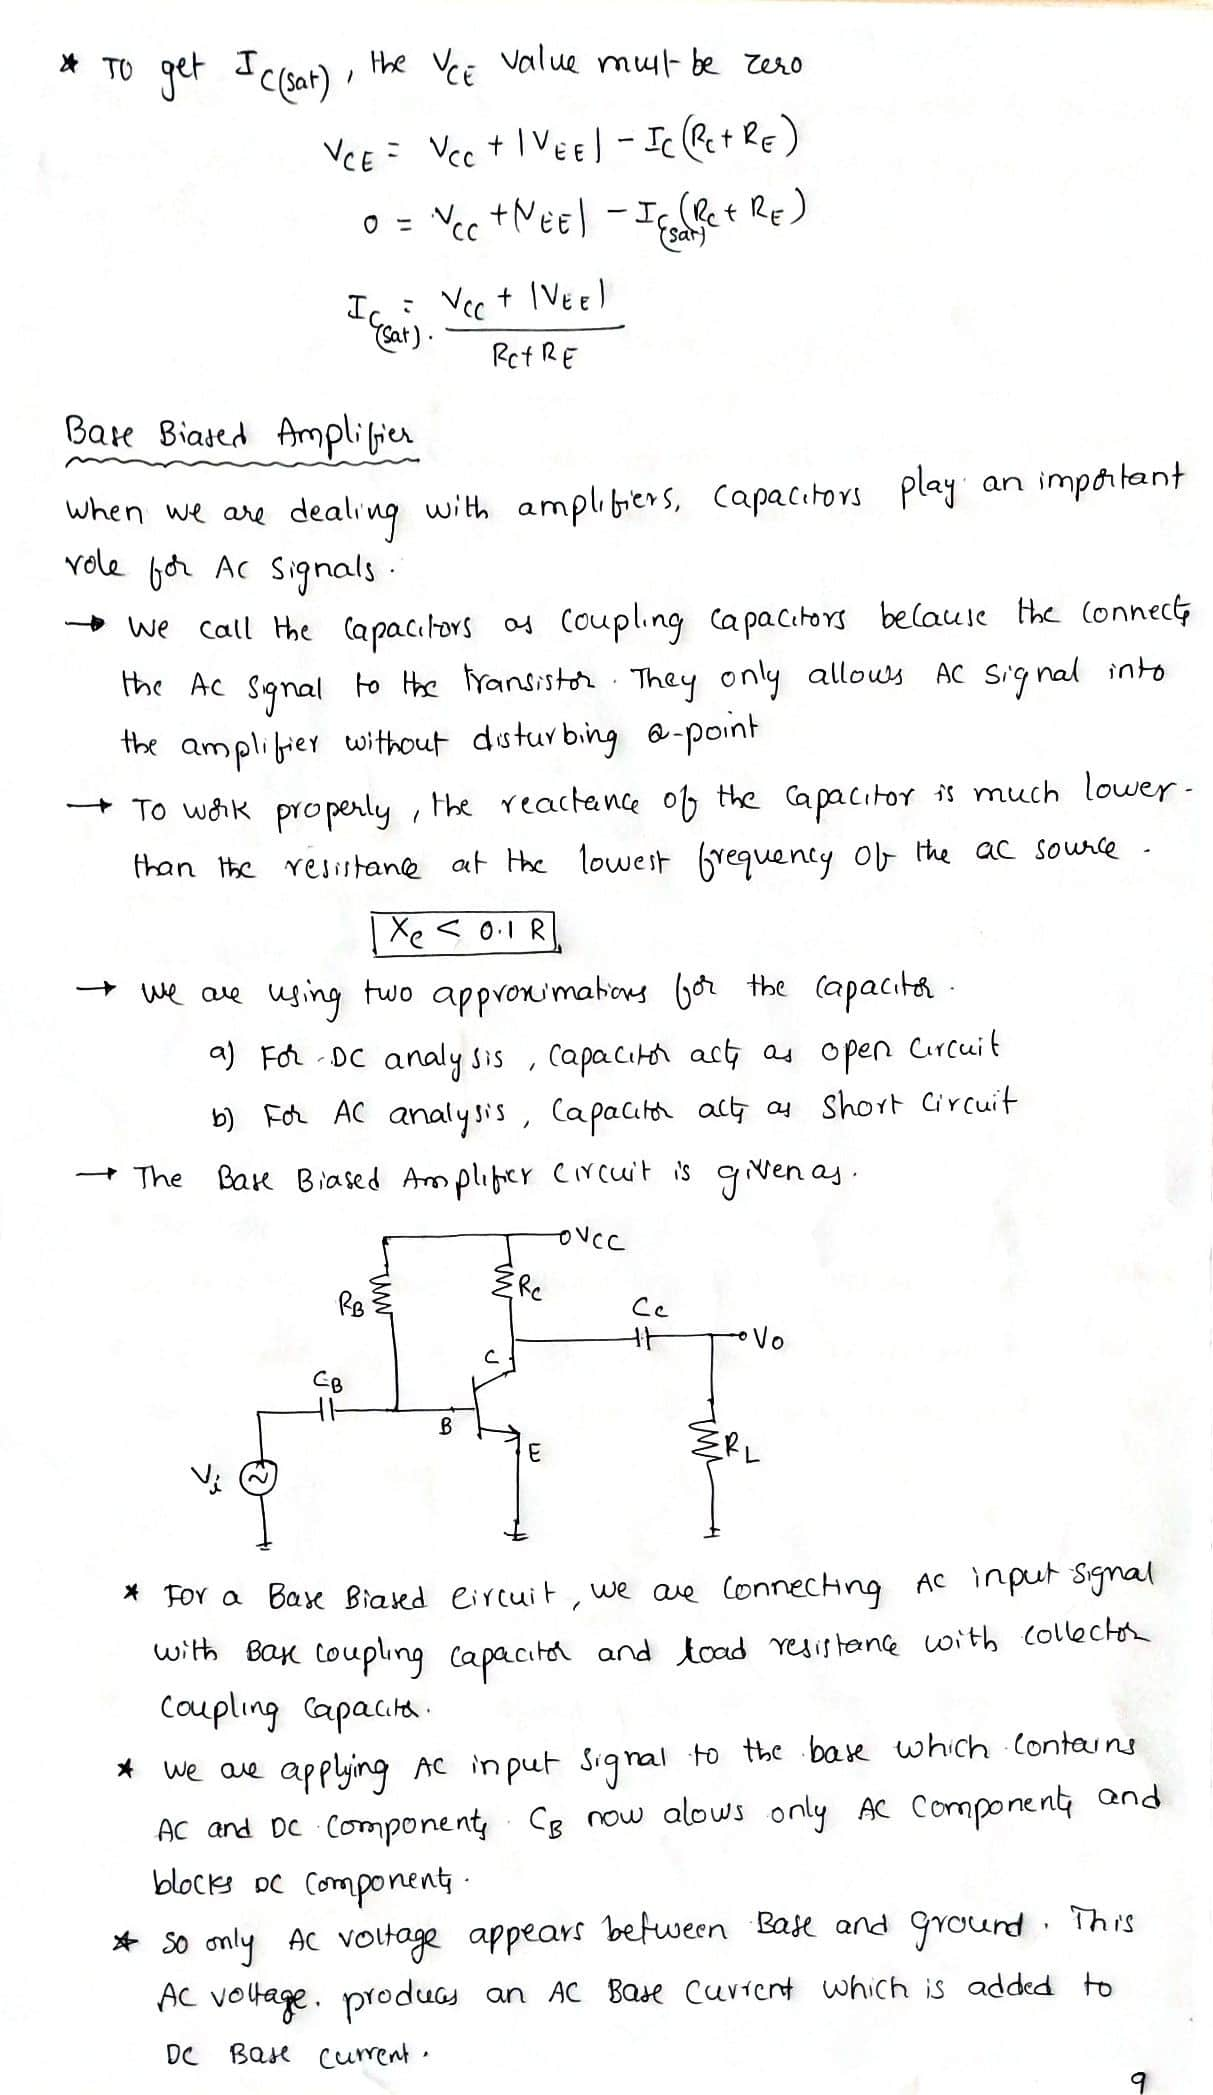 * To get IC(sat), the VCE value must be zero
VCE = VCC + |VEE| - IC (RC + RE)
0 = VCC + |VEE| - IC(sat) (RC + RE)
IC(sat) = VCC + |VEE|
RC + RE
Base Biased Amplifier
when we are dealing with amplifiers, Capacitors play an important
role for AC Signals.
→ We call the Capacitors as Coupling Capacitors because the connects
the AC Signal to the transistor. They only allows AC Signal into
the amplifier without disturbing Q-point
→ To work properly, the reactance of the Capacitor is much lower-
than the resistance at the lowest frequency of the ac source.
XC < 0.1 R
→ we are using two approximations for the Capacitor.
a) For DC analysis, Capacitor acts as open Circuit
b) For AC analysis, Capacitor acts as Short Circuit
→ The Base Biased Amplifier Circuit is given as.
VCC
RC
RB
CC
Vo
C
CB
B
E
RL
Vi
* For a Base Biased Circuit, we are Connecting AC input Signal
with Base Coupling Capacitor and load resistance with collector
Coupling Capacitor.
* We are applying AC input Signal to the base which Contains
AC and DC Components. CB now alows only AC Components and
blocks DC Components.
* So only AC voltage appears between Base and ground. This
AC voltage. produces an AC Base Current which is added to
DC Base Current.
9